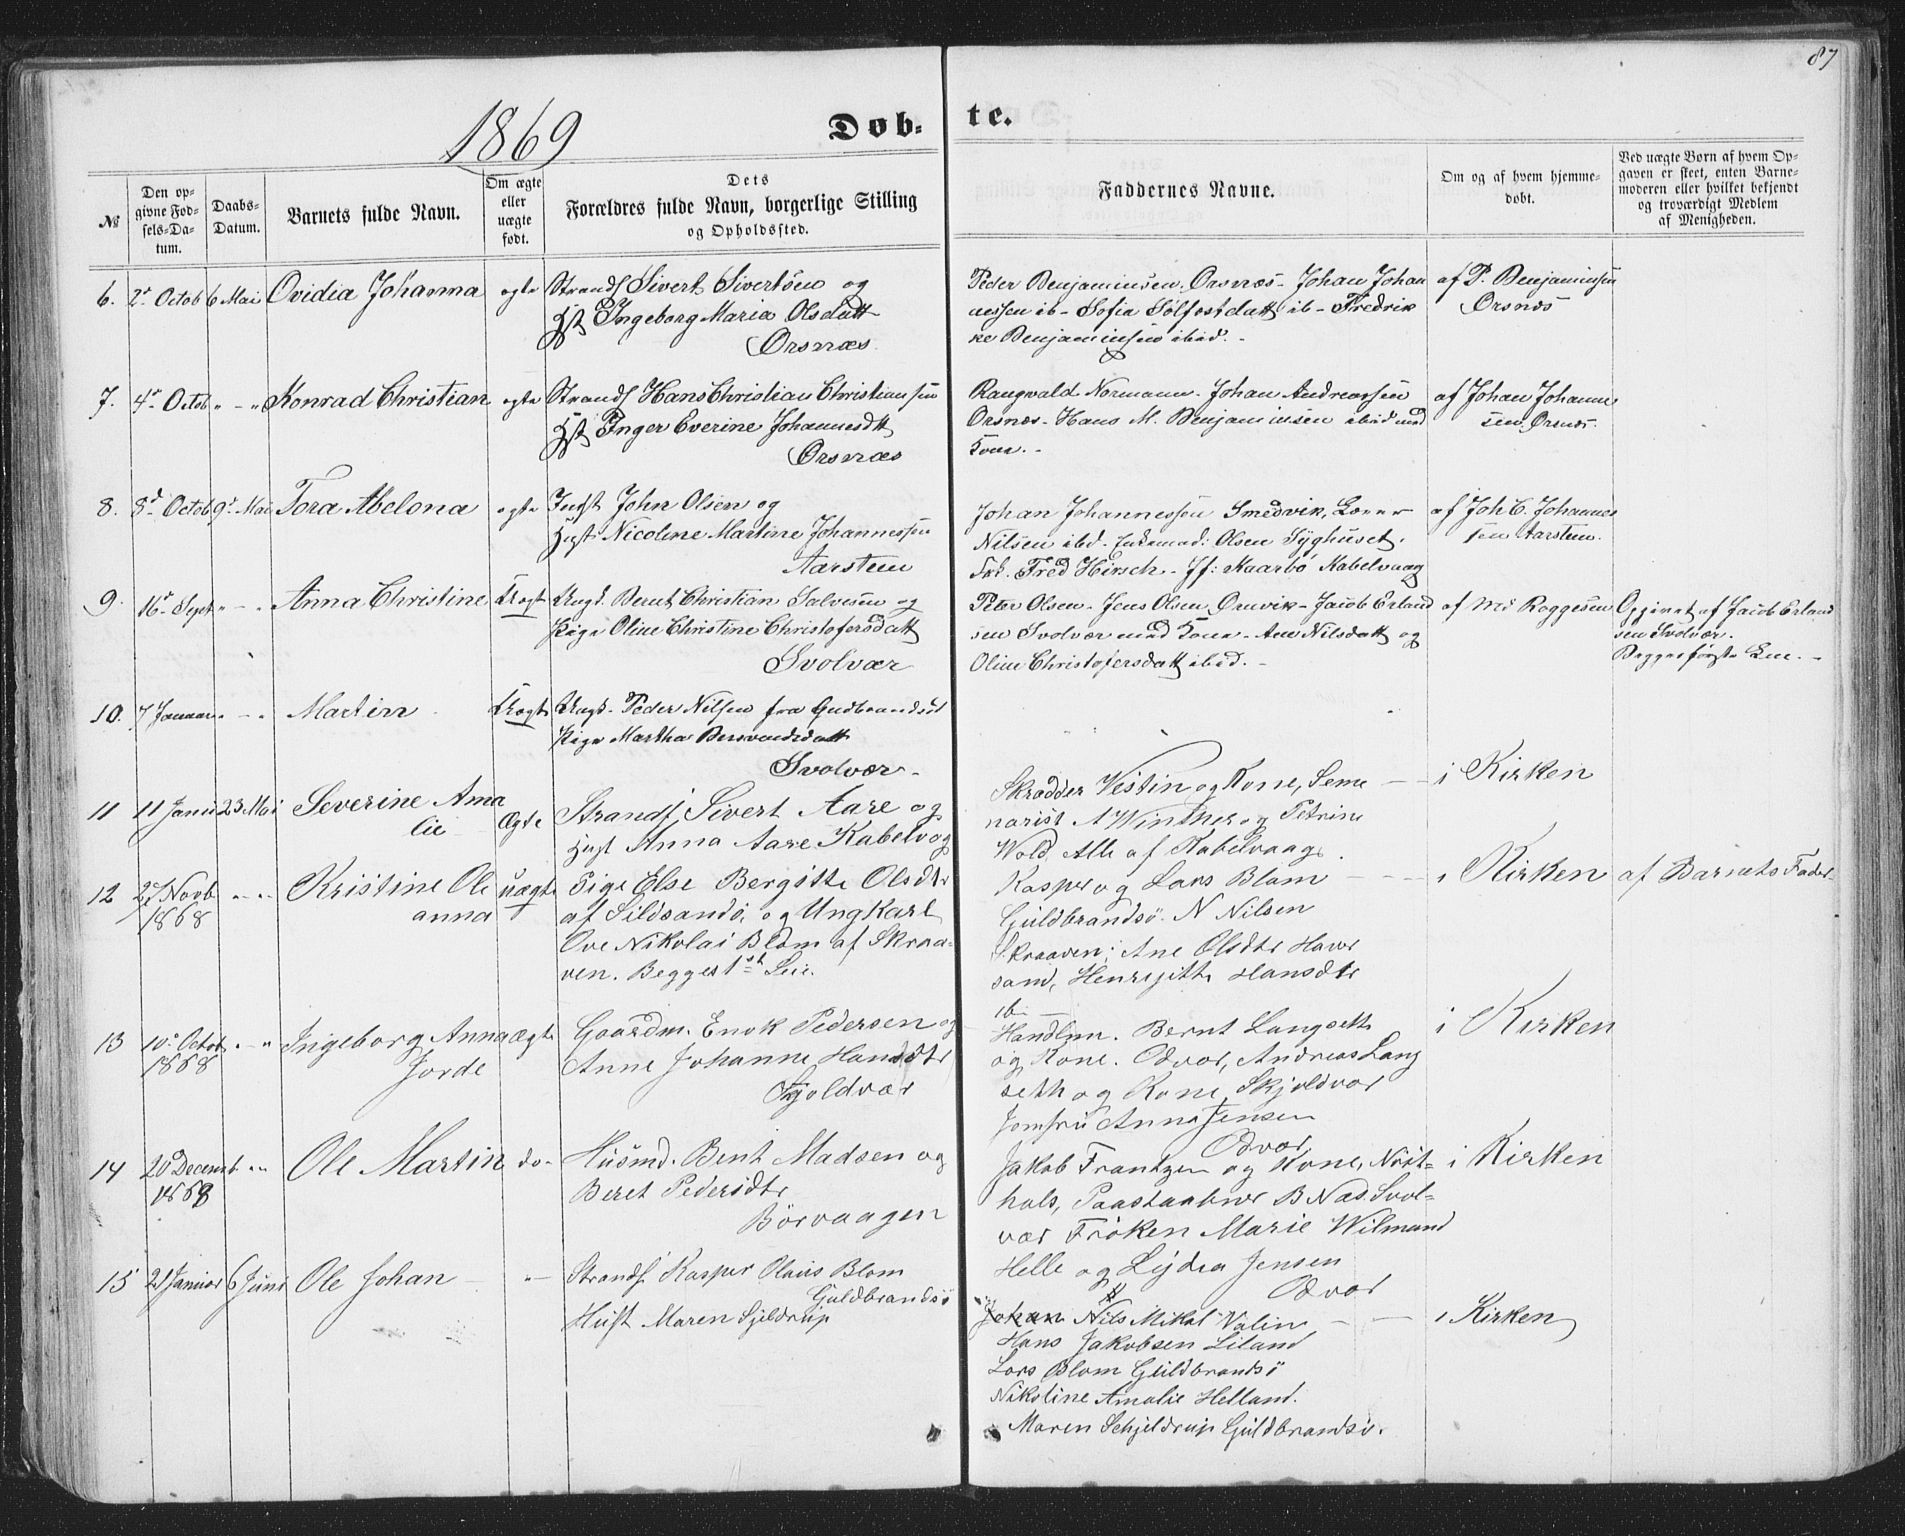 87
1869
Døb- te.
№
Den op-
givne Fød-
sels-Da-
tum.
Daabs-
Datum.
Barnets fulde Navn.
Om ægte
eller
uægte
født.
Dets
Forældres fulde Navn, borgerlige Stilling
og Opholdssted.
Faddernes Navne.
Om og af hvem hjemme-
døbt.
Ved uægte Børn af hvem Op-
gaven er skeet, enten Barne-
moderen eller hvilket bekjendt
og troværdigt Medlem
af Menigheden.
6. 2d Octob 6 Mai Ovidia Johanna ægte Strands Sivert Sivertsen og
Hst Ingeborg Maria Olsdatt
Ørsnæs
Peder Benjaminsen Ørsnæs - Johan Johan
nessen ib - Sofia Sølfestdatt ib - Fredrik
ke Benjaminsen ibid. -
af P. Benjaminsen
Ørsnæs
7. 4d Octob " - " Konrad Christian ægte Strands Hans Christian Christiansen
Hst Inger Everine Johannesdtt
Ørsnæs
Rangvald Normann - Johan Andreassen
Ørsnæs - Hans M. Benjaminsen ibid med
Kone. -
af Johan Johanne
sen Ørsnæs.
8. 8d Octob 9d Mai Tora Abelona ægte Indst John Olsen og
Hust Nicoline Martine Johannessen
Aarsteen
Johan Johannessen Smedvik,
Nilsen ibd. Enkemad: Olsen Syghuset.
Frk. Fred Hirsch - Jf: Kaarbø Kabelvaag
af Joh C. Johannes
sen Aarsteen.
9. 16d Sept " - " Anna Christine Uægt Ungk. Bernt Christian Salvesen og
Pige Oline Christine Christofersdatt
Svolvær
Peter Olsen - Jens Olsen Ørnvik - Jacob Erland
sen Svolvær med Kone - Ane Nilsdatt og
Oline Christofersdatt ibid. -
af Md Roggesen
Opgivet af Jacob Erland
sen Svolvær.
Begges første Leie. -
10. 7 Januar " - " Martin Uægte Ungk. Peder Nilsen fra Gudbrandsdl
Pige Martha
Svolvær -
11 11 Janu 23. Mai Severine Ama
lie Ægte
Strands Sivert Aare og
Hust Anna Aare Kabelvog
Skrædder Vestin og Kone, Seme
narist A Winther og Petrine
Wold, Alle af Kabelvaag.
i Kirken
12 27 Novb
1868 " - " Kristine Ole
anna uægte
Pige Else Bergitte Olsdtr
af Sildsandø, og Ungkarl
Ove Nikolai Blom af Skraa-
ven. Begges 1ste Leie.
Kasper og Lars Blom
Guldbrandsö. N Nilsen
Skraaven; Ane Olsdtr Haver
sand, Henrijette Hansdtr
ib -
i Kirken
af Barnets Fader
13 10de Octob
1868 " - " Ingeborg Anna
Jorde ægte
Gaardm. Enok Pedersen og
Anne Johanne Hansdtr
Skjoldvær
Handlm. Bernt Langseth
og Kone. Odvær, Andreas Lang
seth og Kone Skjoldvær
Jomfru Anna Jensen
Odvær
i Kirken
14 20 Decemb
1868 " " Ole Martin do-
Husmd. Bent Madsen og
Beret Pedersdtr
Börvaagen
Jakob Frantzen og Kone,
hals, Paastaabner B Næs Svol-
vær Frøken Marie Wilmand
Helle og Lydia Jensen
Odvær
i Kirken
15 21 Januar 6 Juni Ole Johan " -
Strands. Kasper Olaus Blom
Guldbrandsö
Hust Maren Sjeldrup
Johan Nils Mikal Valin
Hans Jakobsen Liland
Lars Blom Guldbrandsö
Nikoline Amalie Helland.
Maren Schjeldrup Guldbrandsö.
i Kirken